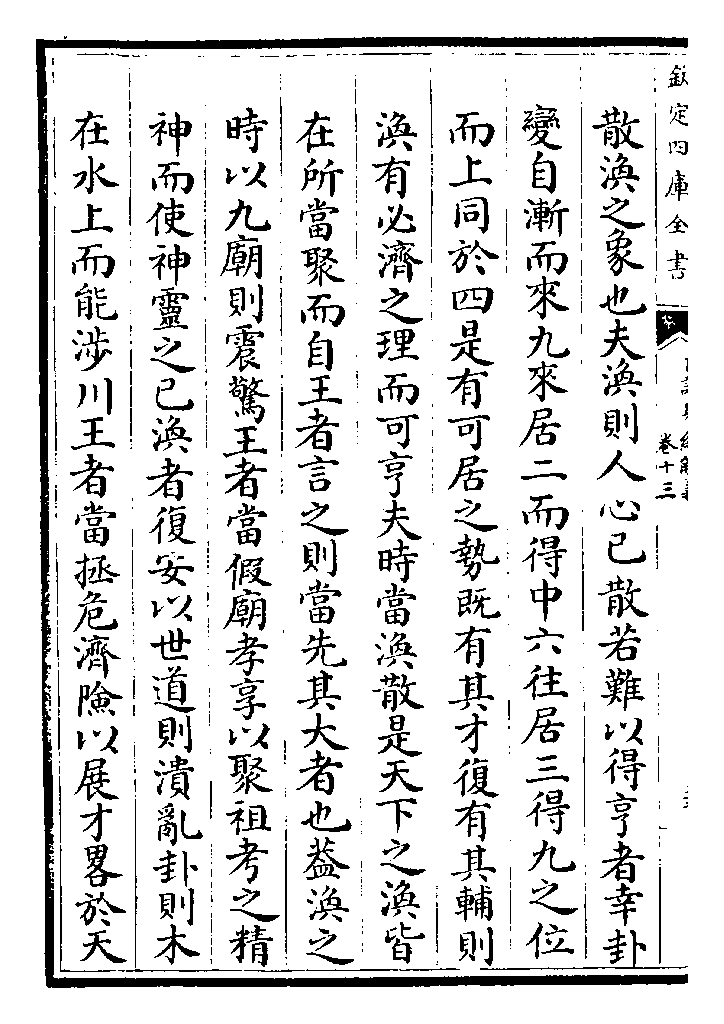 欽定四庫全書
卷十三
散渙之象也夫渙則人心已散若難以得亨者幸卦
變自漸而來九來居二而得中六往居三得九之位
而上同於四是有可居之勢既有其才復有其輔則
渙有必濟之理而可亨夫時當渙散是天下之渙皆
在所當聚而自王者言之則當先其大者也葢渙之
時以九廟則震驚王者當假廟孝享以聚祖考之精
神而使神靈之已渙者復安以世道則潰亂卦則木
在水上而能涉川王者當拯危濟險以展才畧於天